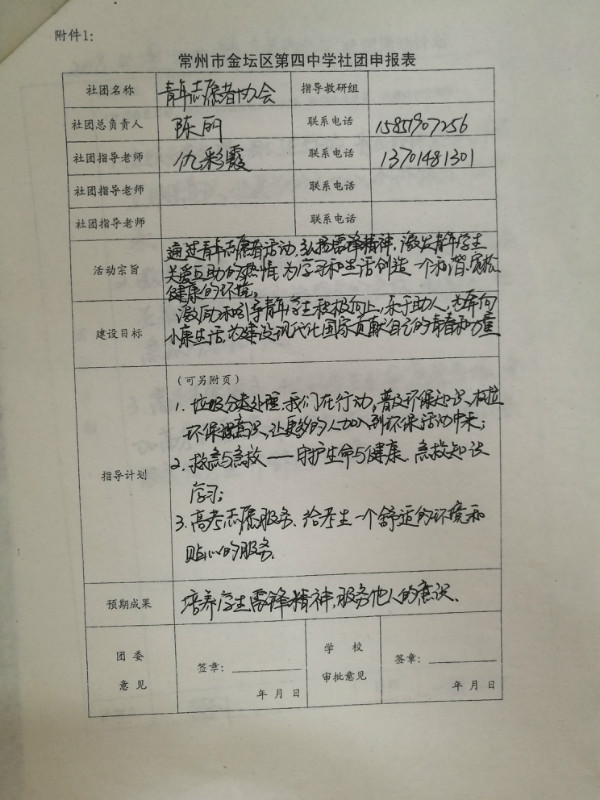 附件1:
常州市金坛区第四中学社团申报表
社团名称 青年志愿者协会 指导教研组
社团总负责人 陈丽 联系电话 15851907256
社团指导老师 仇彩霞 联系电话 13701481301
社团指导老师 联系电话
社团指导老师 联系电话
通过青年志愿者活动,弘扬雷锋精神,激发青年学生
活动宗旨 关爱互助的热情,为学习和生活创造一个和谐、宽松
健康的环境。
激励和引导青年学生积极向上,乐于助人,为奔向
建设目标 小康生活,为建设现代化国家贡献自己的青春和力量
(可另附页)
1、垃圾分类处理,我们在行动,普及环保知识、树立
环保意识,让更多的人加入到环保活动中来;
指导计划 2、救急与急救——守护生命与健康,急救知识
学习;
3、高考志愿服务、给考生一个舒适的环境和
贴心的服务.
预期成果 培养学生雷锋精神,服务他人的意识.
团委 学校
意见 签章: 审批意见 签章:
年 月 日 年 月 日